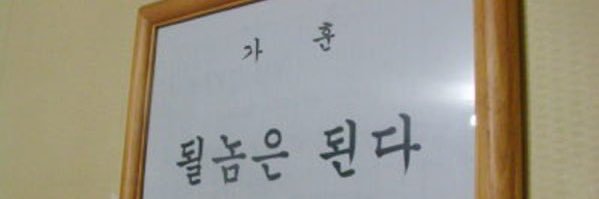 가 훈
될놈은 된다